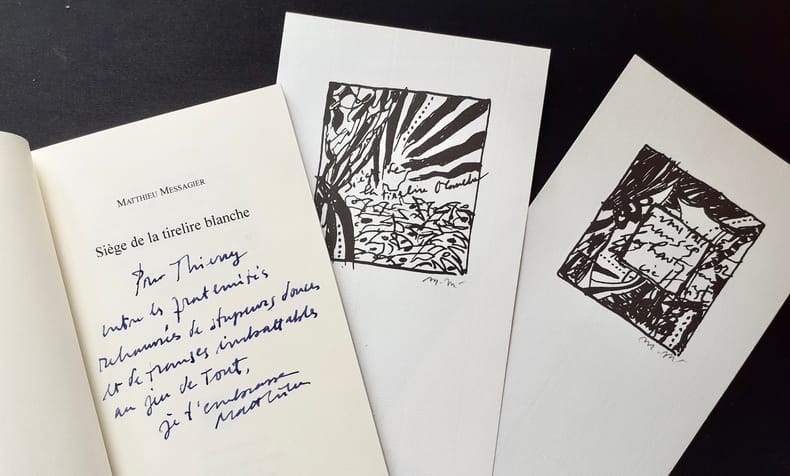 MATTHIEU MESSAGIER
Siège de la tirelire blanche
Pour Thierry
entre les fraternités
rehaussées de stupeurs douces
et de transes imbattables
au jeu de tout,
je t'embrasse
Matthieu
Siège de
la tirelire blanche
M.M.
M.M.